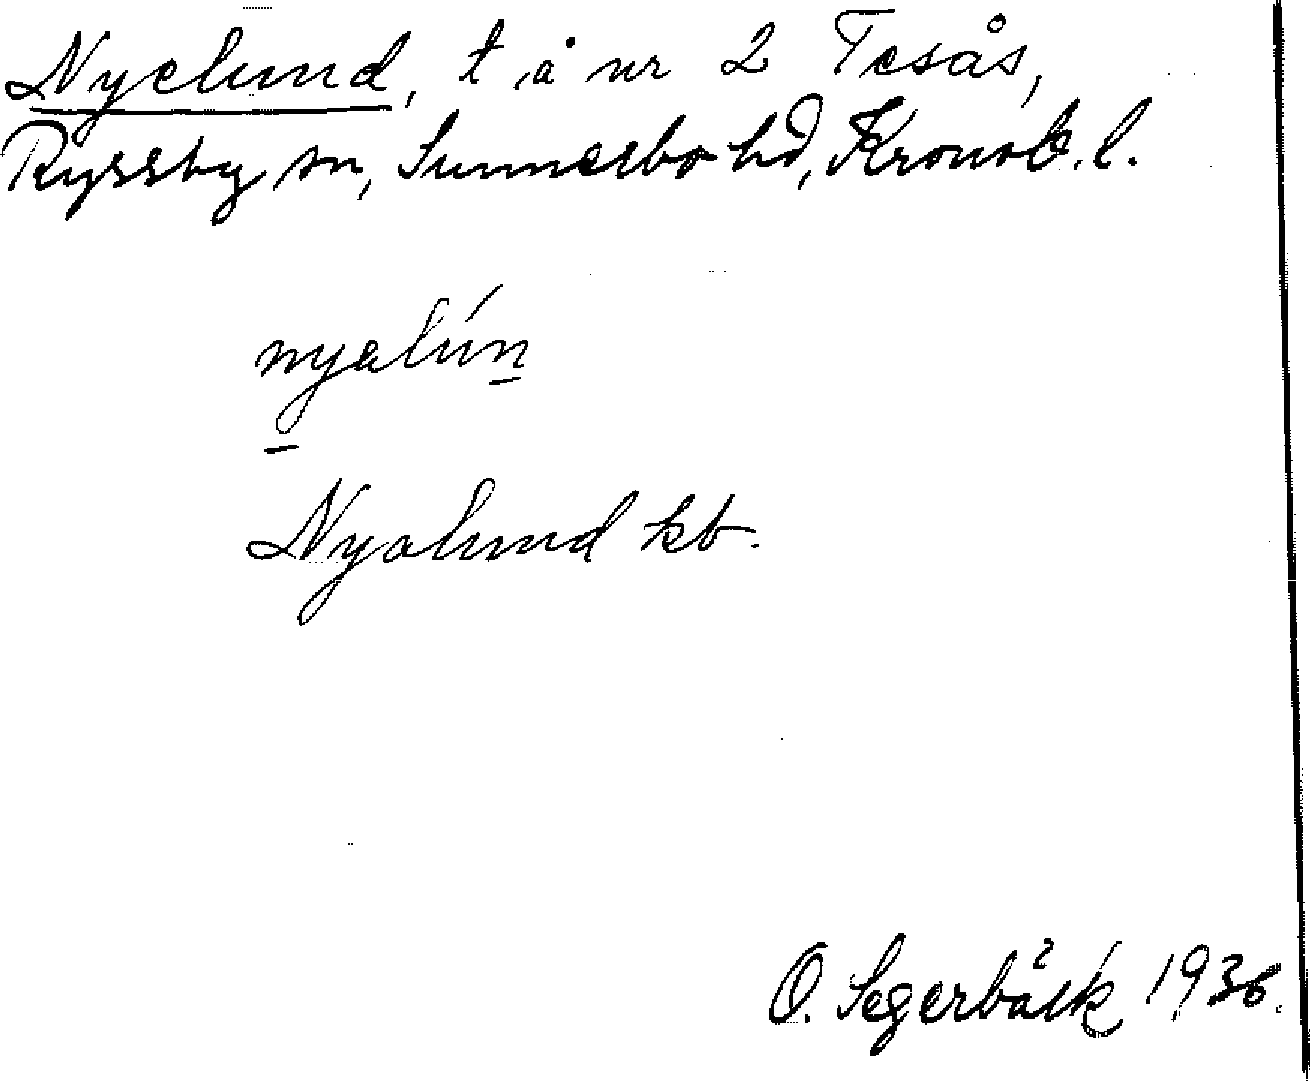 Nyelund, t. å nr 2 Tesås,
Ryssby sn, Sunnerbo hd, Kronob. l.
nyalún
Nyalund kb.
O. Segerbäck 1936.